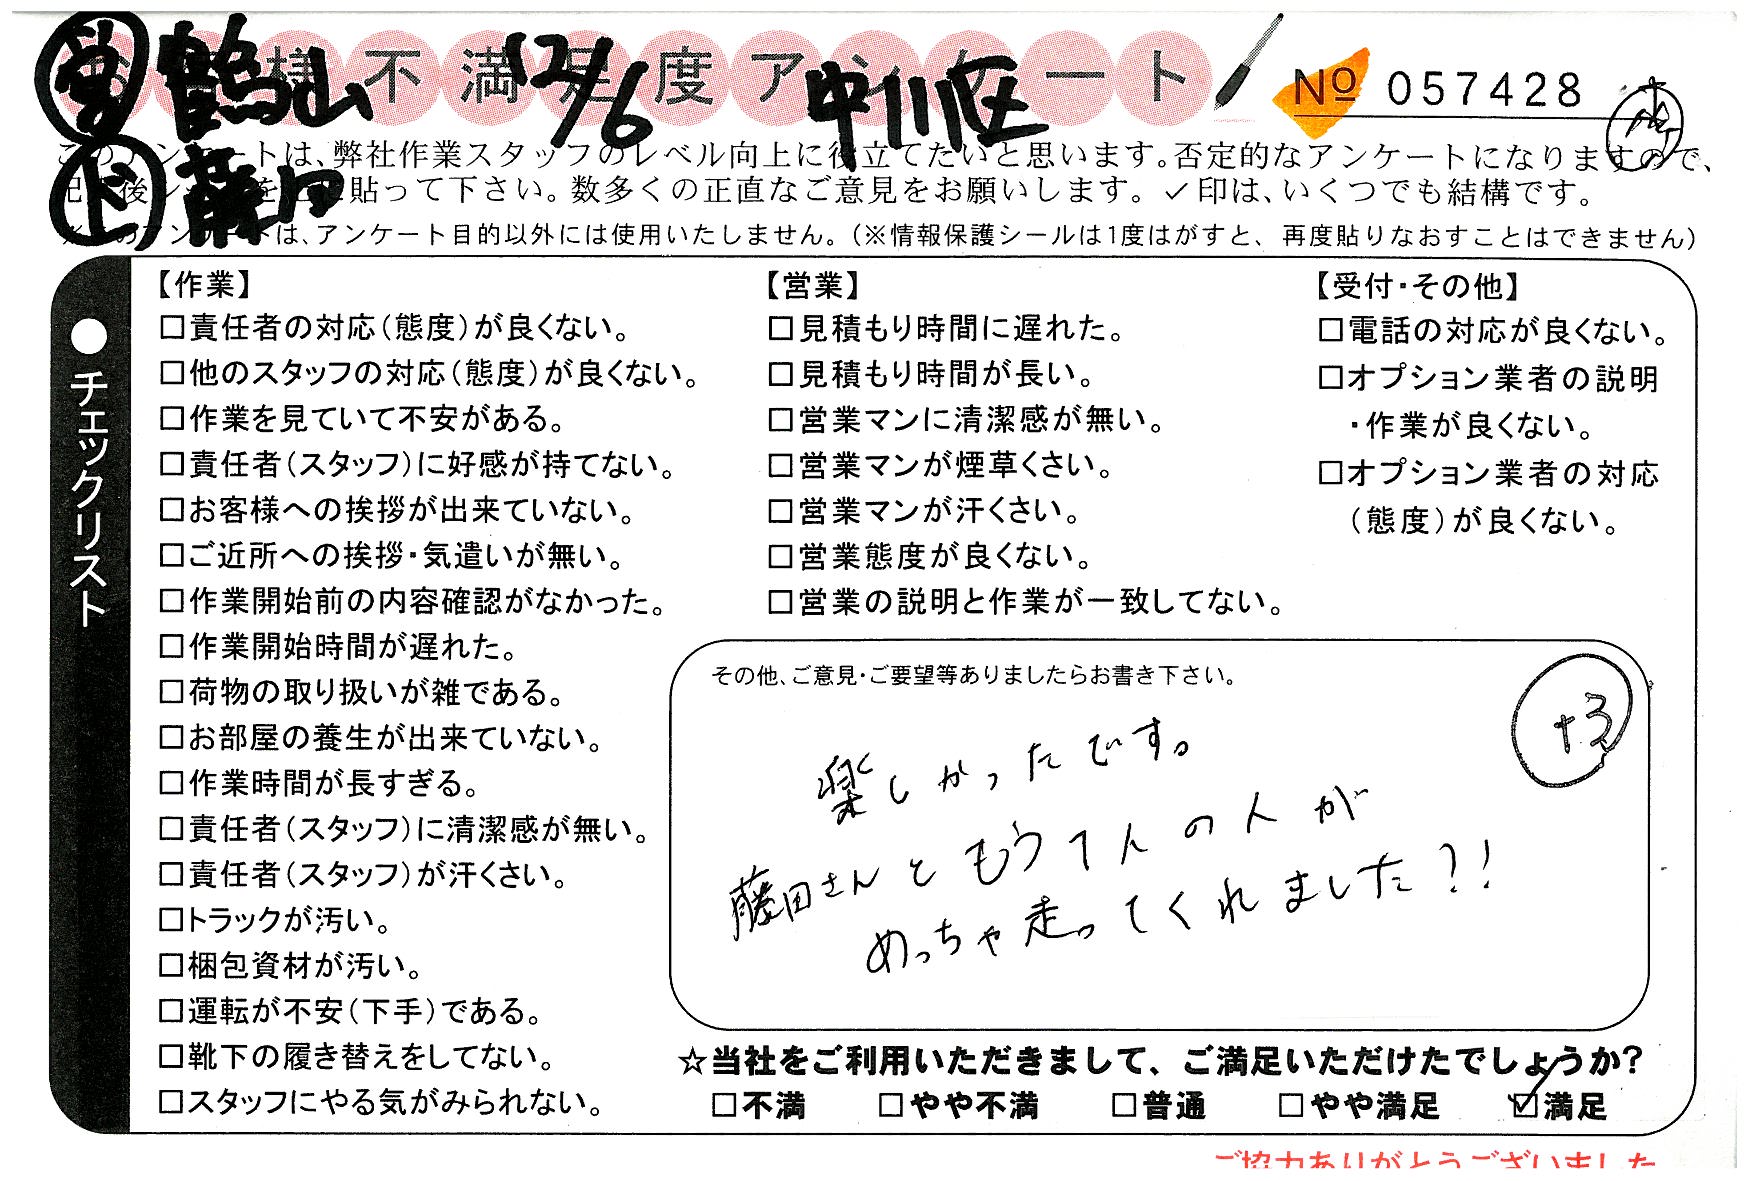 営 鶴山 12/6 中川区
お客様不満足度アンケート
№ 057428
このアンケートは、弊社作業スタッフのレベル向上に役立てたいと思います。否定的なアンケートになりますので、
貼って下さい。数多くの正直なご意見をお願いします。✓印は、いくつでも結構です。
ド 藤田
※このアンケートは、アンケート目的以外には使用いたしません。(※情報保護シールは1度はがすと、再度貼りなおすことはできません)
●チェックリスト
【作業】
□責任者の対応(態度)が良くない。
□他のスタッフの対応(態度)が良くない。
□作業を見ていて不安がある。
□責任者(スタッフ)に好感が持てない。
□お客様への挨拶が出来ていない。
□ご近所への挨拶・気遣いが無い。
□作業開始前の内容確認がなかった。
□作業開始時間が遅れた。
□荷物の取り扱いが雑である。
□お部屋の養生が出来ていない。
□作業時間が長すぎる。
□責任者(スタッフ)に清潔感が無い。
□責任者(スタッフ)が汗くさい。
□トラックが汚い。
□梱包資材が汚い。
□運転が不安(下手)である。
□靴下の履き替えをしてない。
□スタッフにやる気がみられない。
【営業】
□見積もり時間に遅れた。
□見積もり時間が長い。
□営業マンに清潔感が無い。
□営業マンが煙草くさい。
□営業マンが汗くさい。
□営業態度が良くない。
□営業の説明と作業が一致してない。
【受付・その他】
□電話の対応が良くない。
□オプション業者の説明
・作業が良くない。
□オプション業者の対応
(態度)が良くない。
その他、ご意見・ご要望等ありましたらお書き下さい。
+3
楽しかったです。
藤田さんともう1人の人が
めっちゃ走ってくれました?!
☆当社をご利用いただきまして、ご満足いただけたでしょうか?
□不満 □やや不満 □普通 □やや満足 ☑満足
ご協力ありがとうございました